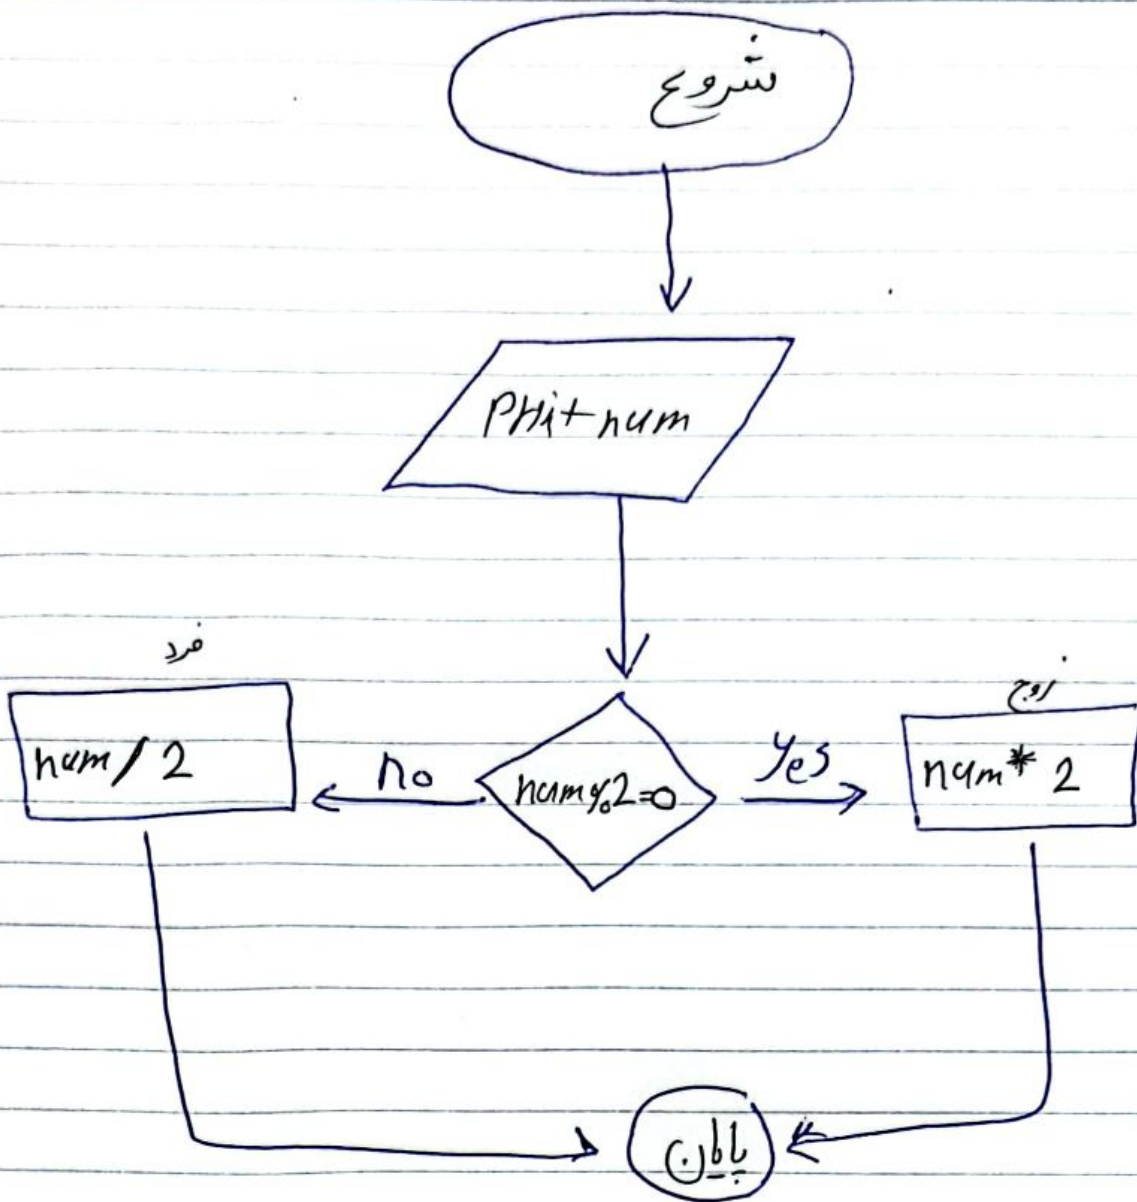 شروع
PHit num
فرد
زوج
num / 2
no
num%2=0
yes
num* 2
پایان